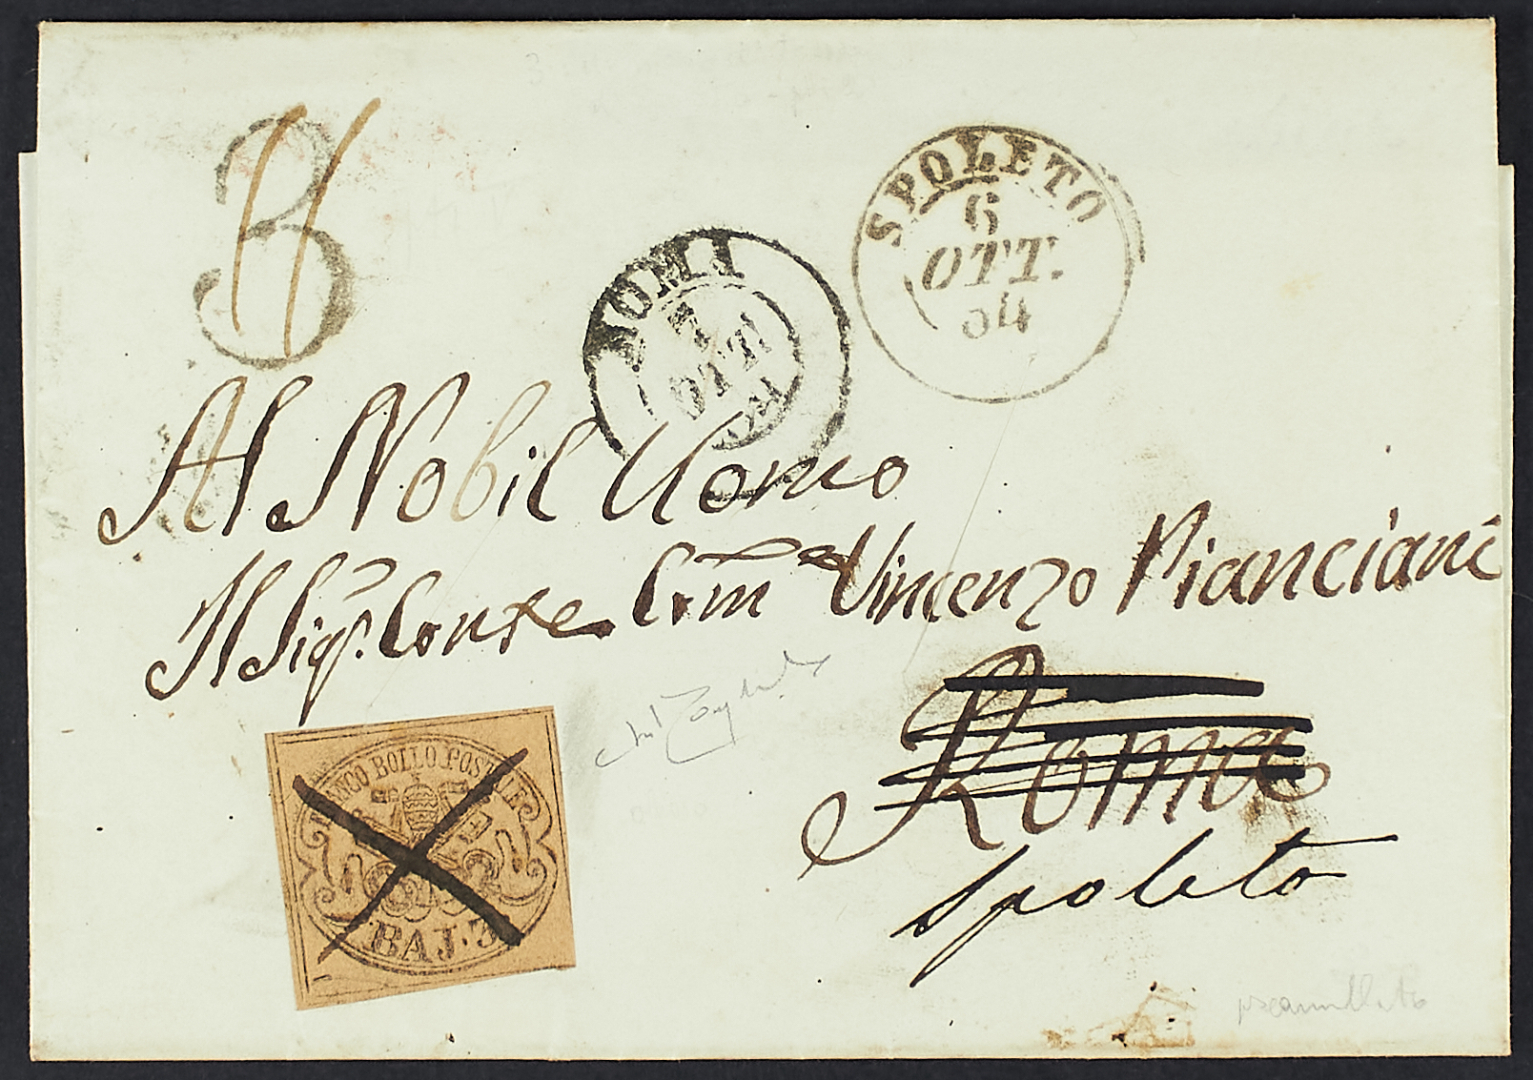 3
SPOLETO
6
OTT.
54
ROMA
7
OTT.
Al Nobil Uomo
Il Sigr. Conte Comm Vincenzo Pianciani
Roma
Spoleto
FRANCO BOLLO POSTALE
BAJ. 3